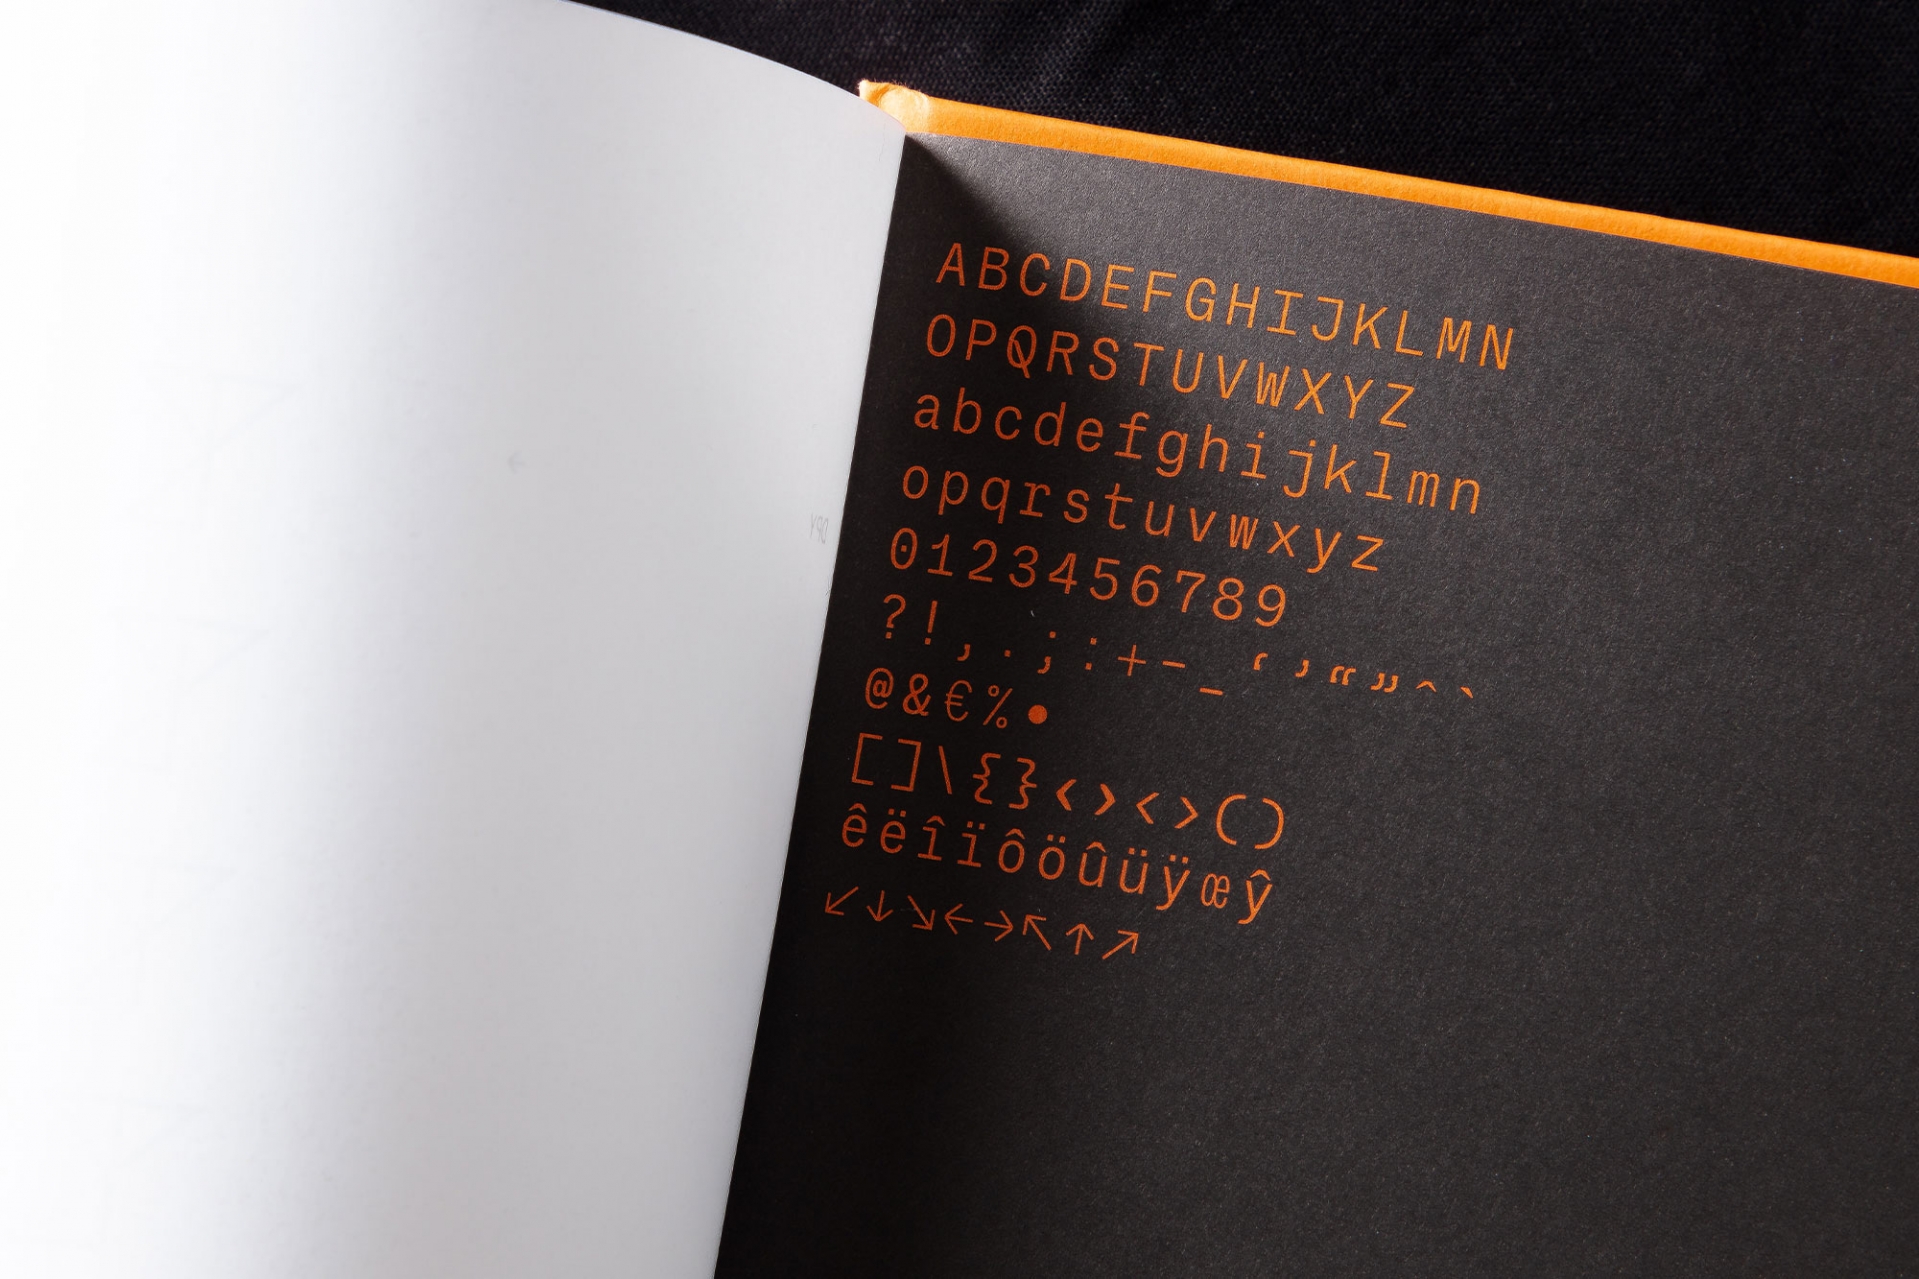 ABCDEFGHIJKLMN
OPQRSTUVWXYZ
abcdefghijklmn
opqrstuvwxyz
0123456789
?!,.;:+-_‘’“”^`
@&€%•
[]\{}‹›<>()
êëîïôöûüÿœŷ
↙↓↘←→↖↑↗